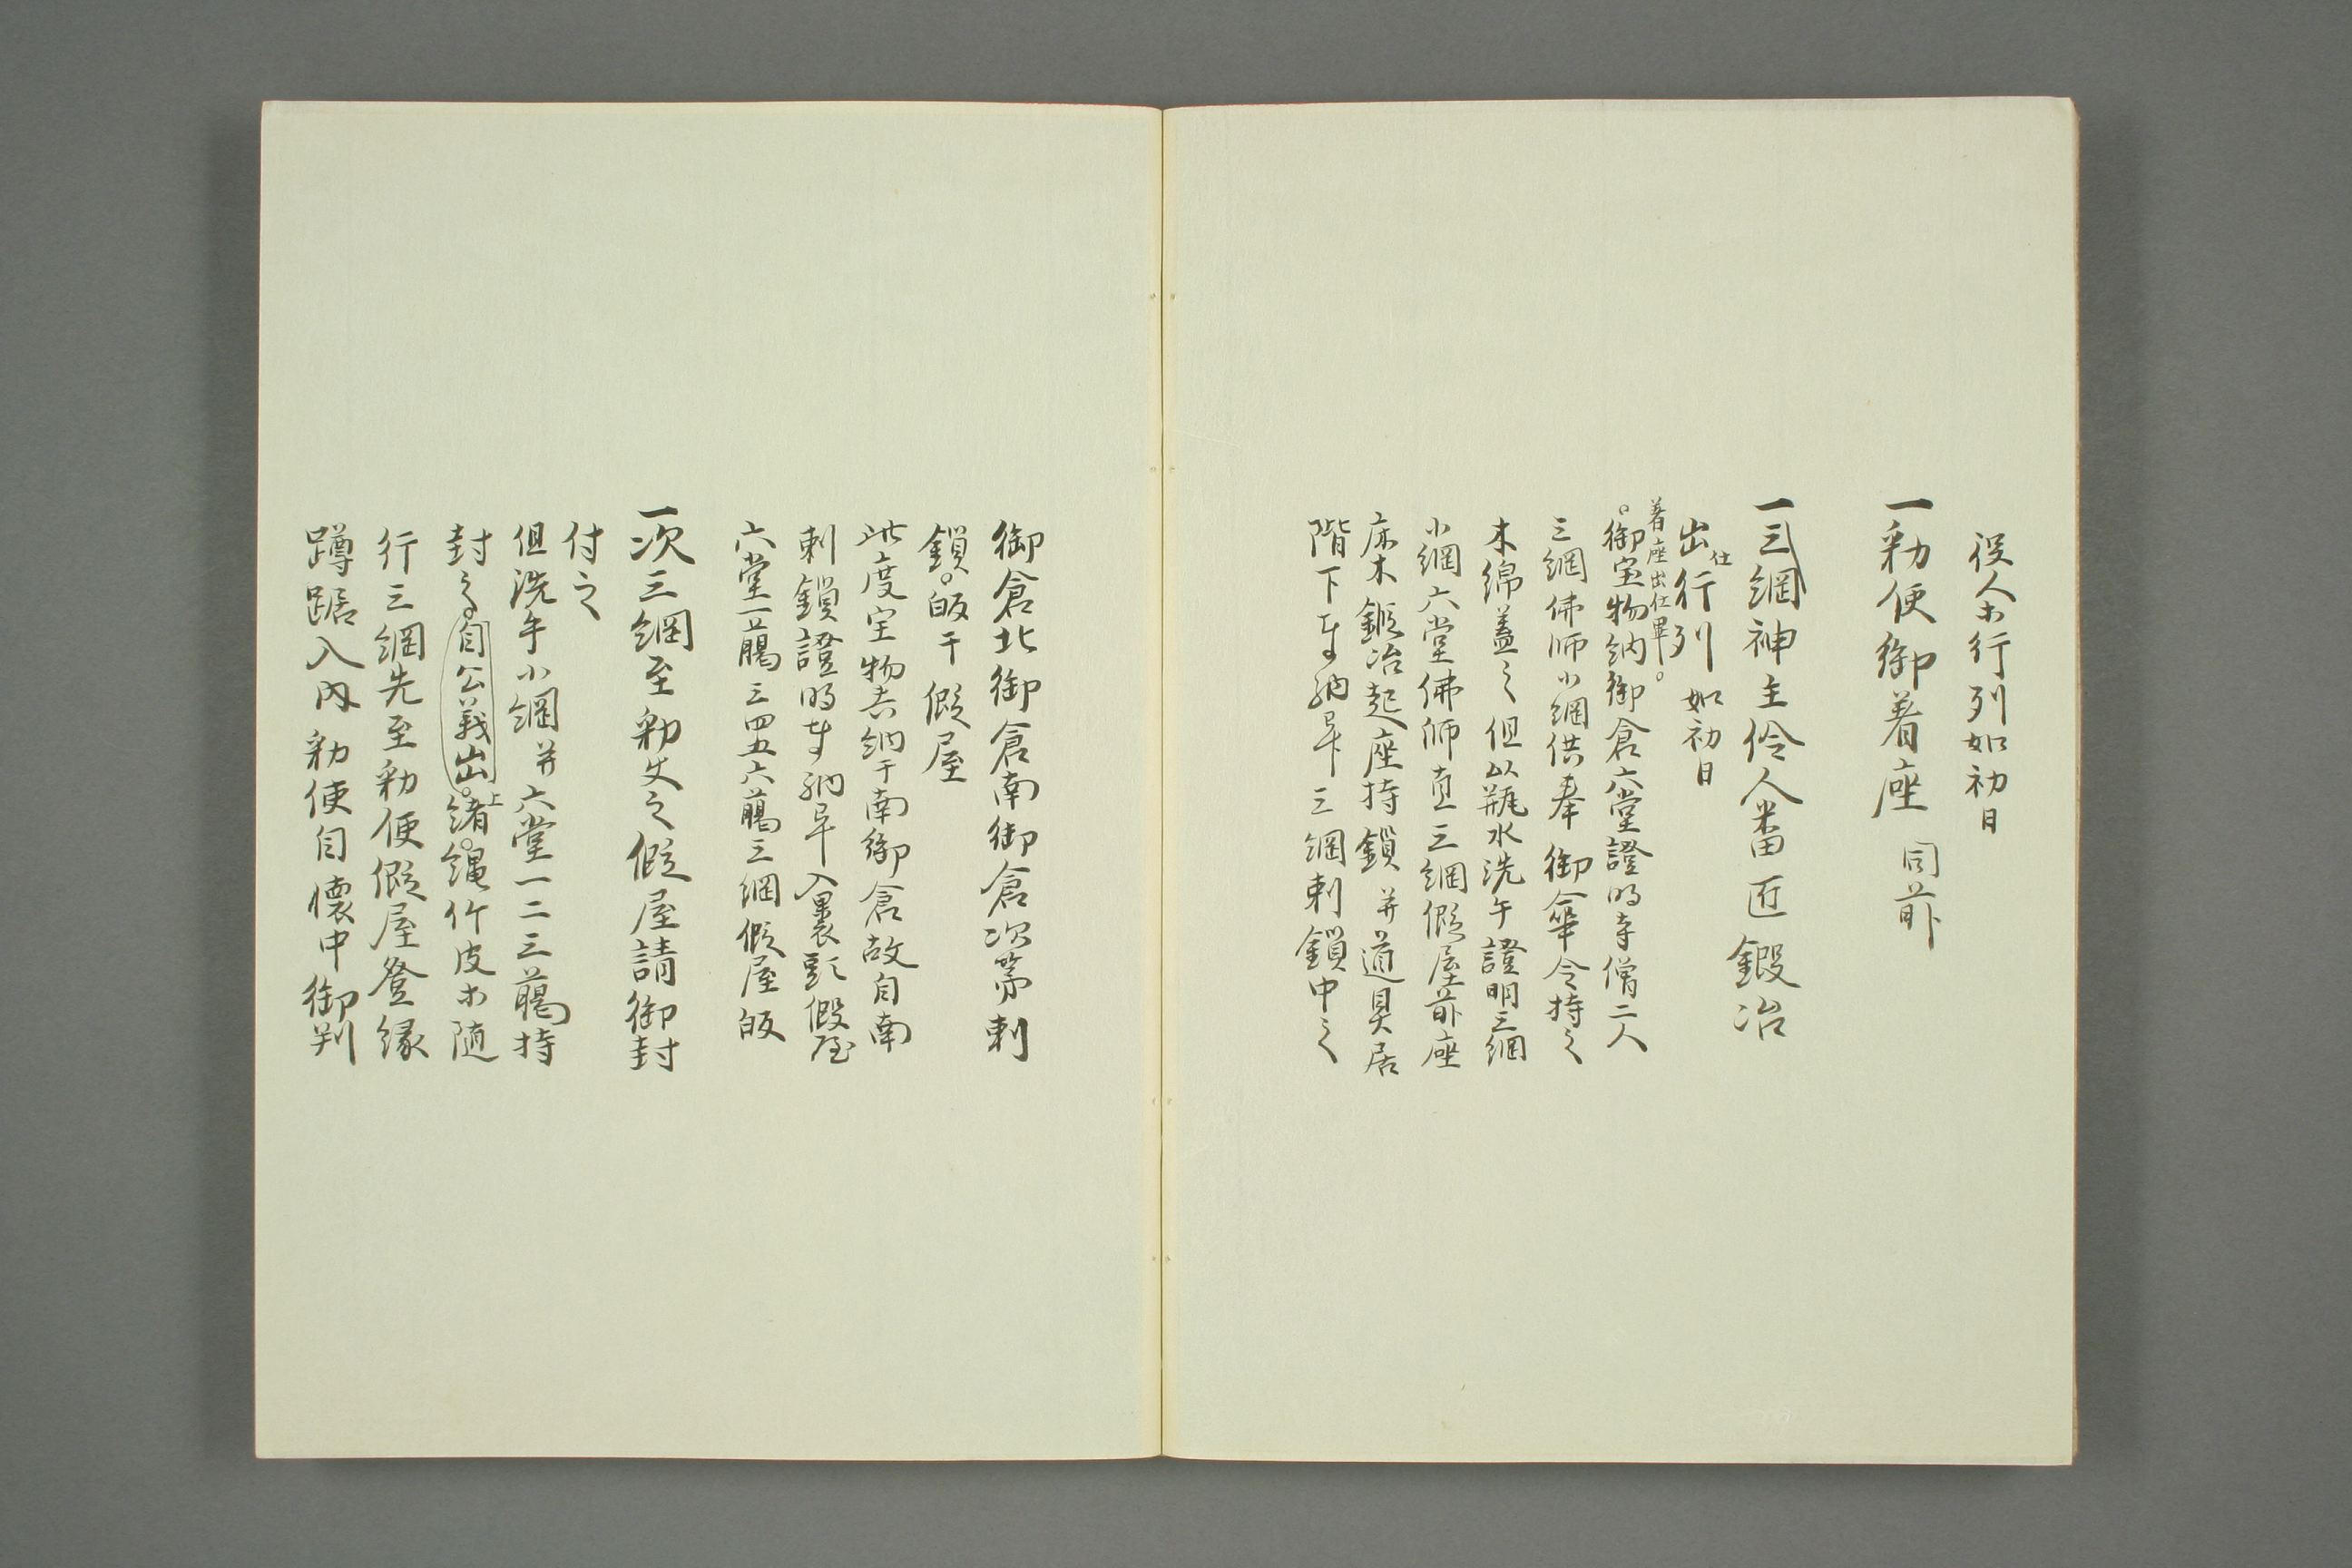 役人等行列如初日
一勅使御着座 同前
一三綱神主伶人番匠鍛冶
出仕行列 如初日
着座出仕畢
御宝物納御倉六堂證明寺僧二人
三綱佛師小綱供奉 御傘令持之
木綿蓋之但以瓶水洗手證明三綱
小綱六堂佛師直三綱假屋前座
床木鍛冶起座持鎖并道具居
階下事納畢三綱刺鎖中之
御倉北御倉南御倉次第刺
鎖皈于假屋
此度宝物者納于南御倉故自南
刺鎖證明事納畢入裏頭假屋
六堂一﨟三四五六﨟三綱假屋皈
一次三綱至勅使之假屋請御封
付之
但洗手小綱并六堂一二三﨟持
封之自公義出上緒縄竹皮等随
行三綱先至勅使假屋登縁
蹲踞入内勅使自懐中御判